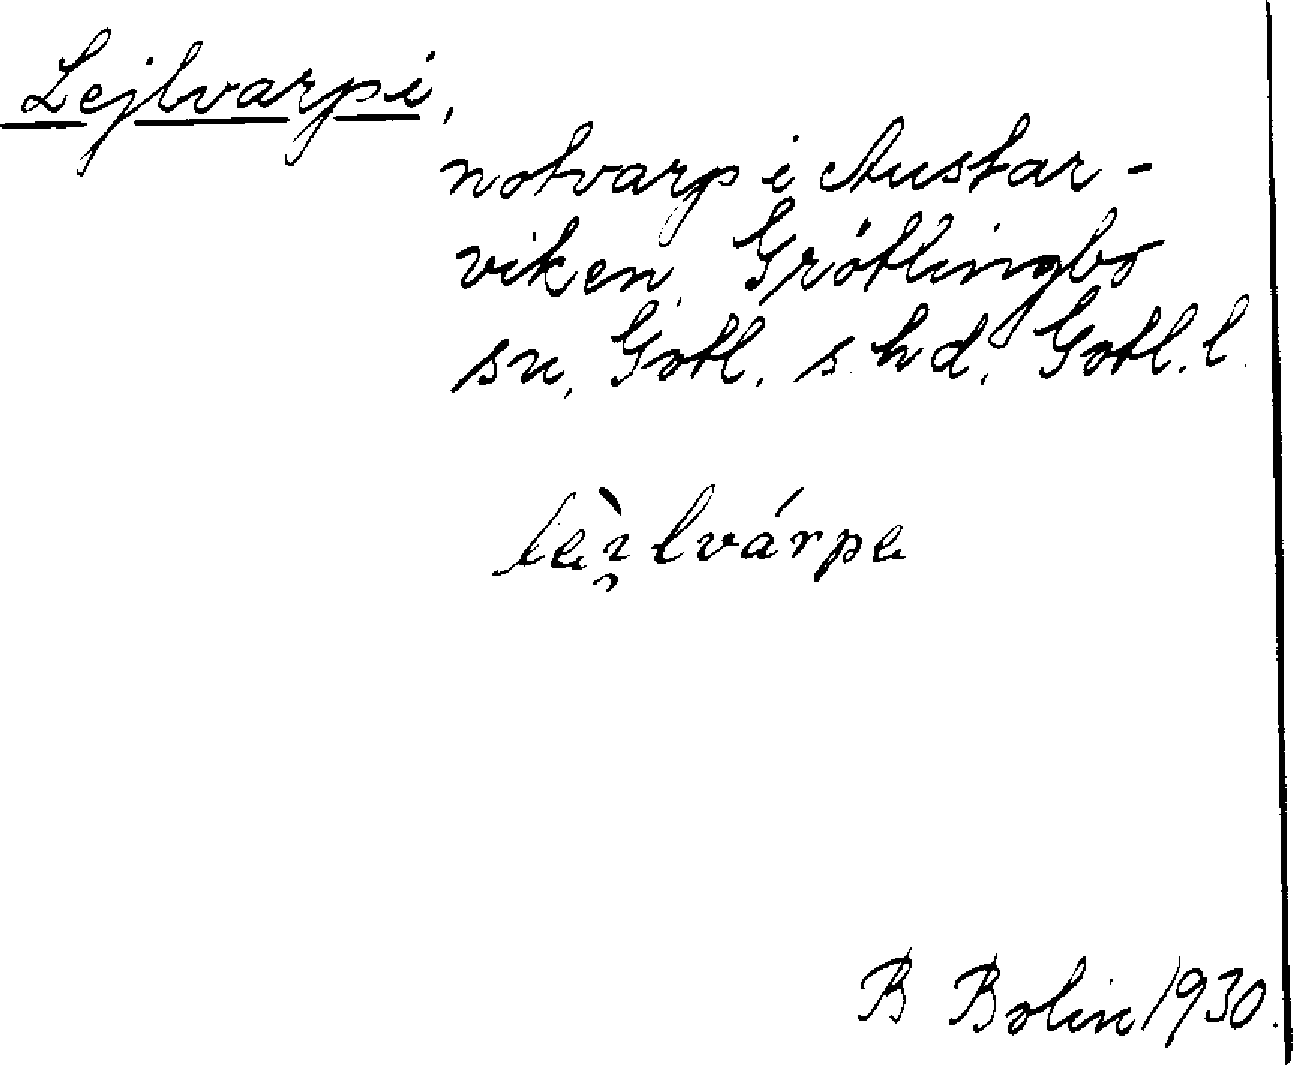 Lejlvarpi,
notvarp i Austar-
viken, Grötlingbo
sn, Gotl. s. hd, Gotl. l.
læ̀i̯lvárpe
B Bolin 1930.